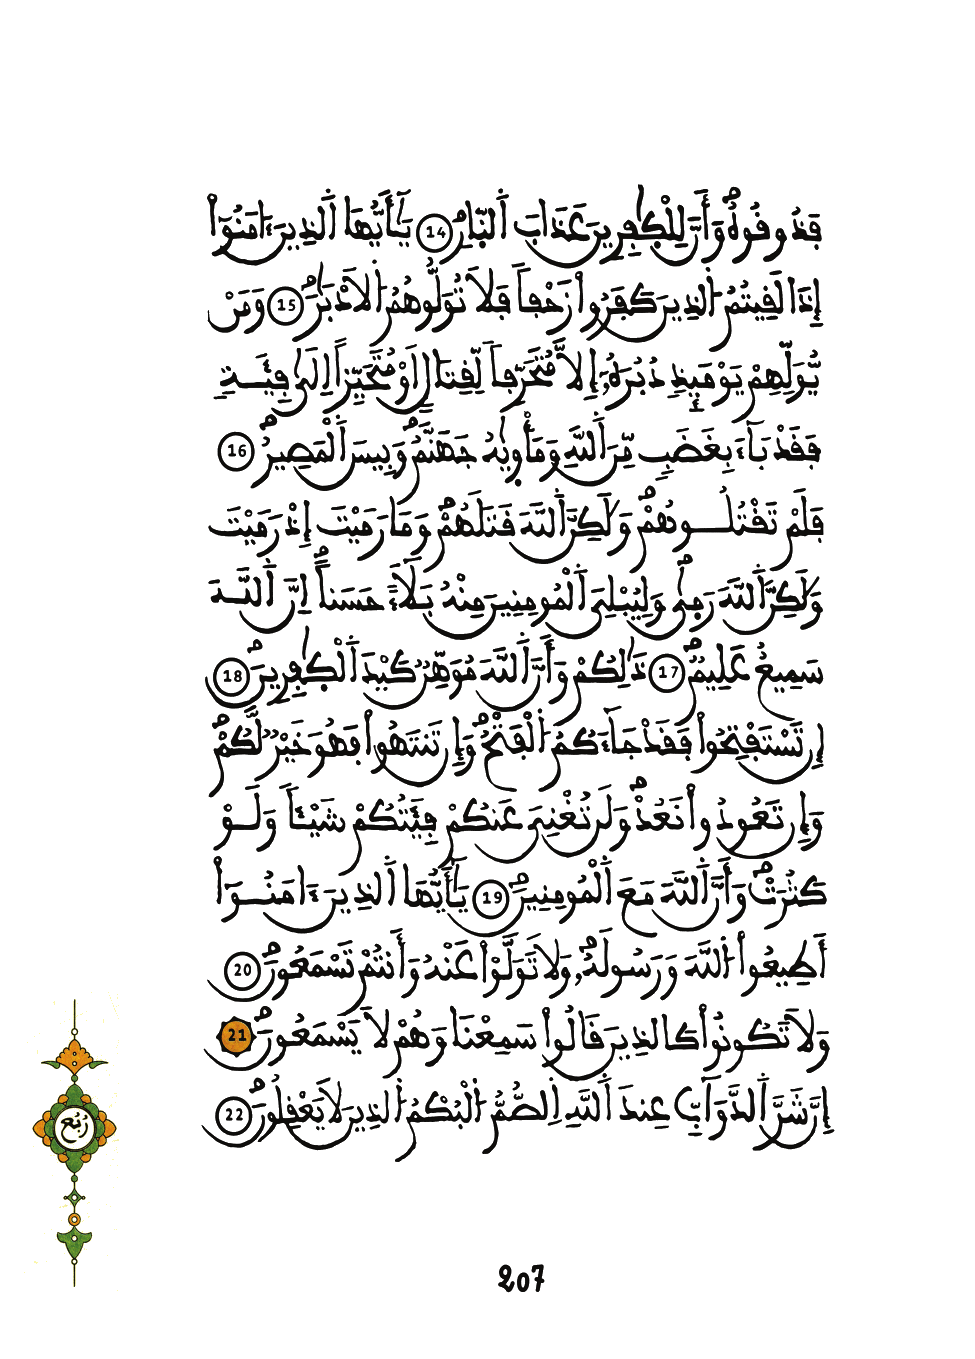 فَذُوقُوهُ وَأَنَّ لِلْكَٰفِرِينَ عَذَابَ اَ۬لنّ۪ارِ 14 يَٰٓأَيُّهَا اَ۬لذِينَ ءَامَنُوٓاْ
إِذَا لَقِيتُمُ اُ۬لذِينَ كَفَرُواْ زَحْفاٗ فَلَا تُوَلُّوهُمُ اُ۬لَادْبَٰرَ 15 وَمَنْ
يُّوَلِّهِمْ يَوْمَئِذٖ دُبُرَهُۥٓ إِلَّا مُتَحَرِّفاٗ لِّقِتَالٍ اَوْ مُتَحَيِّزاً اِلَىٰ فِئَةٖ
فَقَدْ بَآءَ بِغَضَبٖ مِّنَ اَ۬للَّهِ وَمَأْو۪يٰهُ جَهَنَّمُ وَبِيسَ اَ۬لْمَصِيرُ 16
فَلَمْ تَقْتُلُوهُمْ وَلَٰكِنَّ اَ۬للَّهَ قَتَلَهُمْ وَمَا رَمَيْتَ إِذْ رَمَيْتَ
وَلَٰكِنَّ اَ۬للَّهَ رَم۪يٰ وَلِيُبْلِيَ اَ۬لْمُومِنِينَ مِنْهُ بَلَآءً حَسَناً اِنَّ اَ۬للَّهَ
سَمِيعٌ عَلِيمٞ 17 ذَٰلِكُمْ وَأَنَّ اَ۬للَّهَ مُوَهِّنٞ كَيْدَ اَ۬لْكٰ۪فِرِينَ 18
إِن تَسْتَفْتِحُواْ فَقَدْ جَآءَكُمُ اُ۬لْفَتْحُ وَإِن تَنتَهُواْ فَهُوَ خَيْرٞ لَّكُمْ
وَإِن تَعُودُواْ نَعُدْ وَلَن تُغْنِيَ عَنكُمْ فِئَتُكُمْ شَيْـٔاٗ وَلَوْ
كَثُرَتْ وَأَنَّ اَ۬للَّهَ مَعَ اَ۬لْمُومِنِينَ 19 يَٰٓأَيُّهَا اَ۬لذِينَ ءَامَنُوٓاْ
أَطِيعُواْ اُ۬للَّهَ وَرَسُولَهُۥ وَلَا تَوَلَّوْاْ عَنْهُ وَأَنتُمْ تَسْمَعُونَ 20
وَلَا تَكُونُواْ كَالذِينَ قَالُواْ سَمِعْنَا وَهُمْ لَا يَسْمَعُونَ 21
إِنَّ شَرَّ اَ۬لدَّوَآبِّ عِندَ اَ۬للَّهِ اِ۬لصُّمُّ اُ۬لْبُكْمُ اُ۬لذِينَ لَا يَعْقِلُونَ 22
رُبُع
207